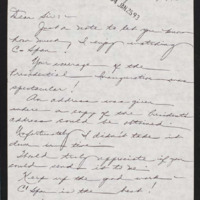 JAN 25 93
Dear Sirs -
Just a note to let you know
how much I enjoy watching
C-Span.
Your coverage of the
Presidential Inauguration was
spectacular!
An address was given
where a copy of the Presidents
address could be obtained.
Unfortunately I didn't take it
down in time.
Would truly appreciate if you
could send it to me.
Keep up the good work -
C-Span is the best!